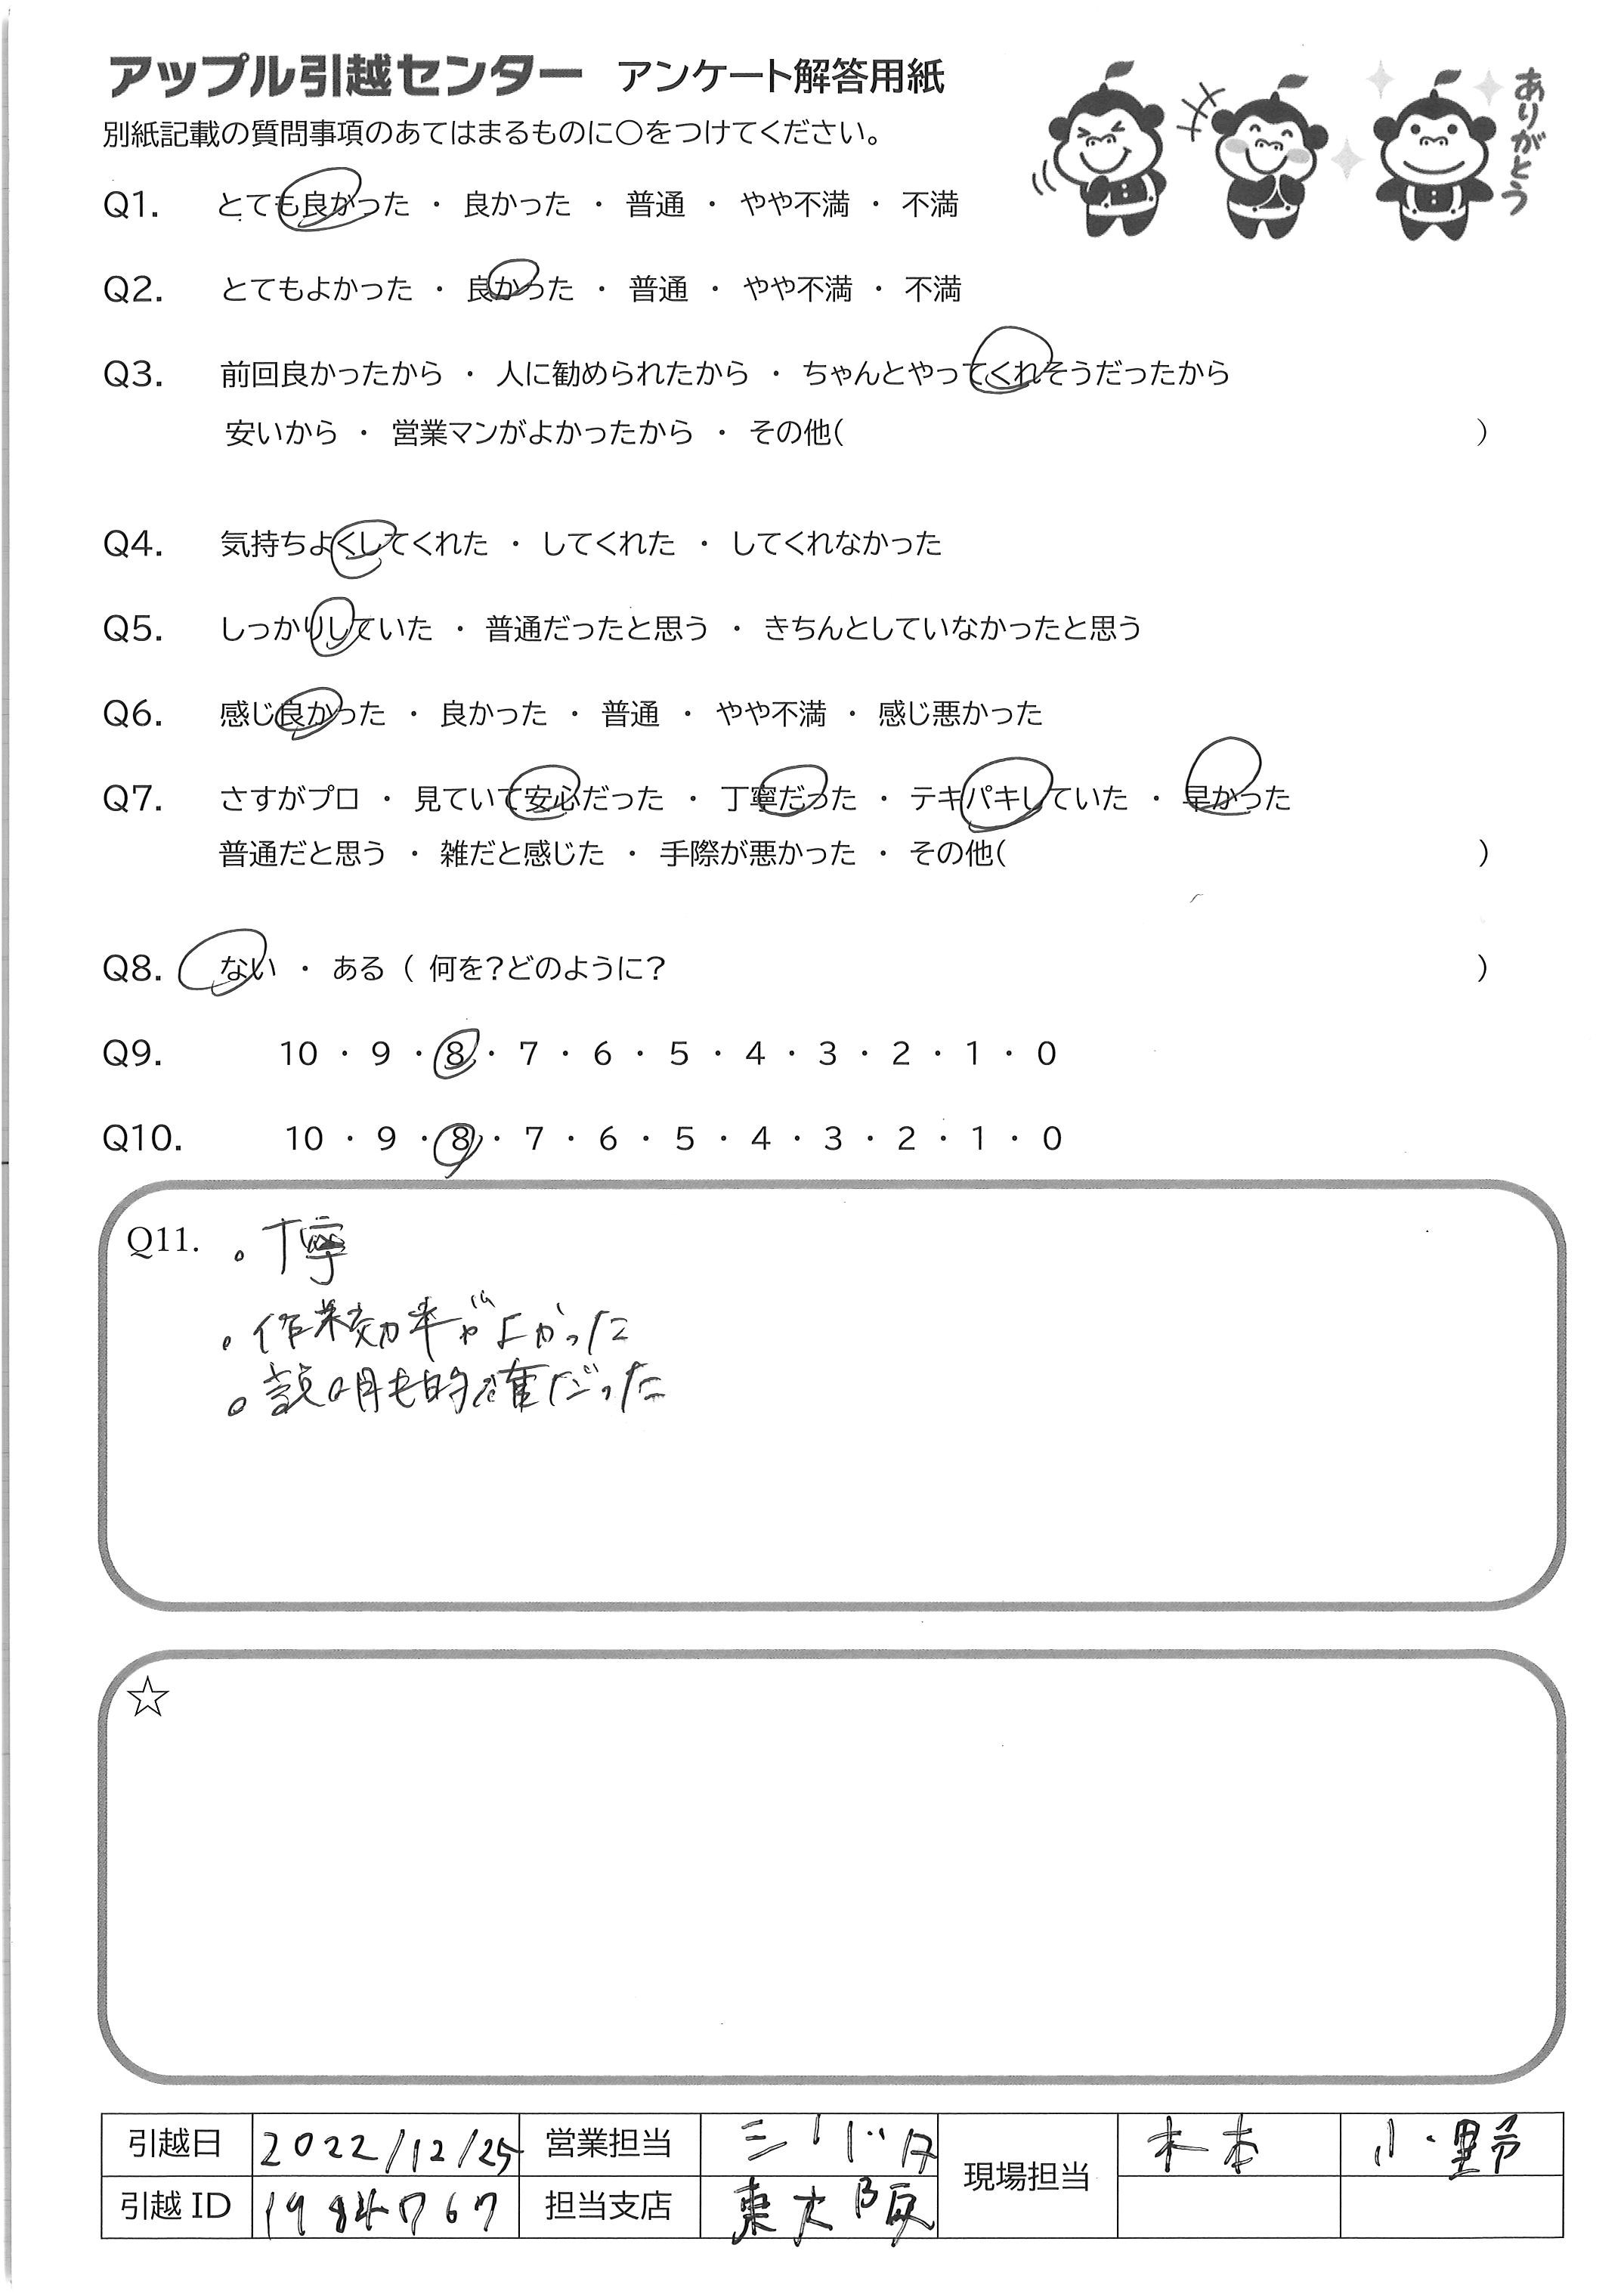 アップル引越センター アンケート解答用紙
ありがとう
別紙記載の質問事項のあてはまるものに○をつけてください。
Q1. とても良かった ・ 良かった ・ 普通 ・ やや不満 ・ 不満
Q2. とてもよかった ・ 良かった ・ 普通 ・ やや不満 ・ 不満
Q3. 前回良かったから ・ 人に勧められたから ・ ちゃんとやってくれそうだったから
安いから ・ 営業マンがよかったから ・ その他( )
Q4. 気持ちよくしてくれた ・ してくれた ・ してくれなかった
Q5. しっかりしていた ・ 普通だったと思う ・ きちんとしていなかったと思う
Q6. 感じ良かった ・ 良かった ・ 普通 ・ やや不満 ・ 感じ悪かった
Q7. さすがプロ ・ 見ていて安心だった ・ 丁寧だった ・ テキパキしていた ・ 早かった
普通だと思う ・ 雑だと感じた ・ 手際が悪かった ・ その他( )
Q8. ない ・ ある ( 何を?どのように? )
Q9. 10 ・ 9 ・ 8 ・ 7 ・ 6 ・ 5 ・ 4 ・ 3 ・ 2 ・ 1 ・ 0
Q10. 10 ・ 9 ・ 8 ・ 7 ・ 6 ・ 5 ・ 4 ・ 3 ・ 2 ・ 1 ・ 0
Q11. 。丁寧
。作業効率がよかった
。説明も的確だった
☆
引越日 2022/12/25 営業担当 現場担当 木本 小野
引越 ID 1984767 担当支店 東大阪